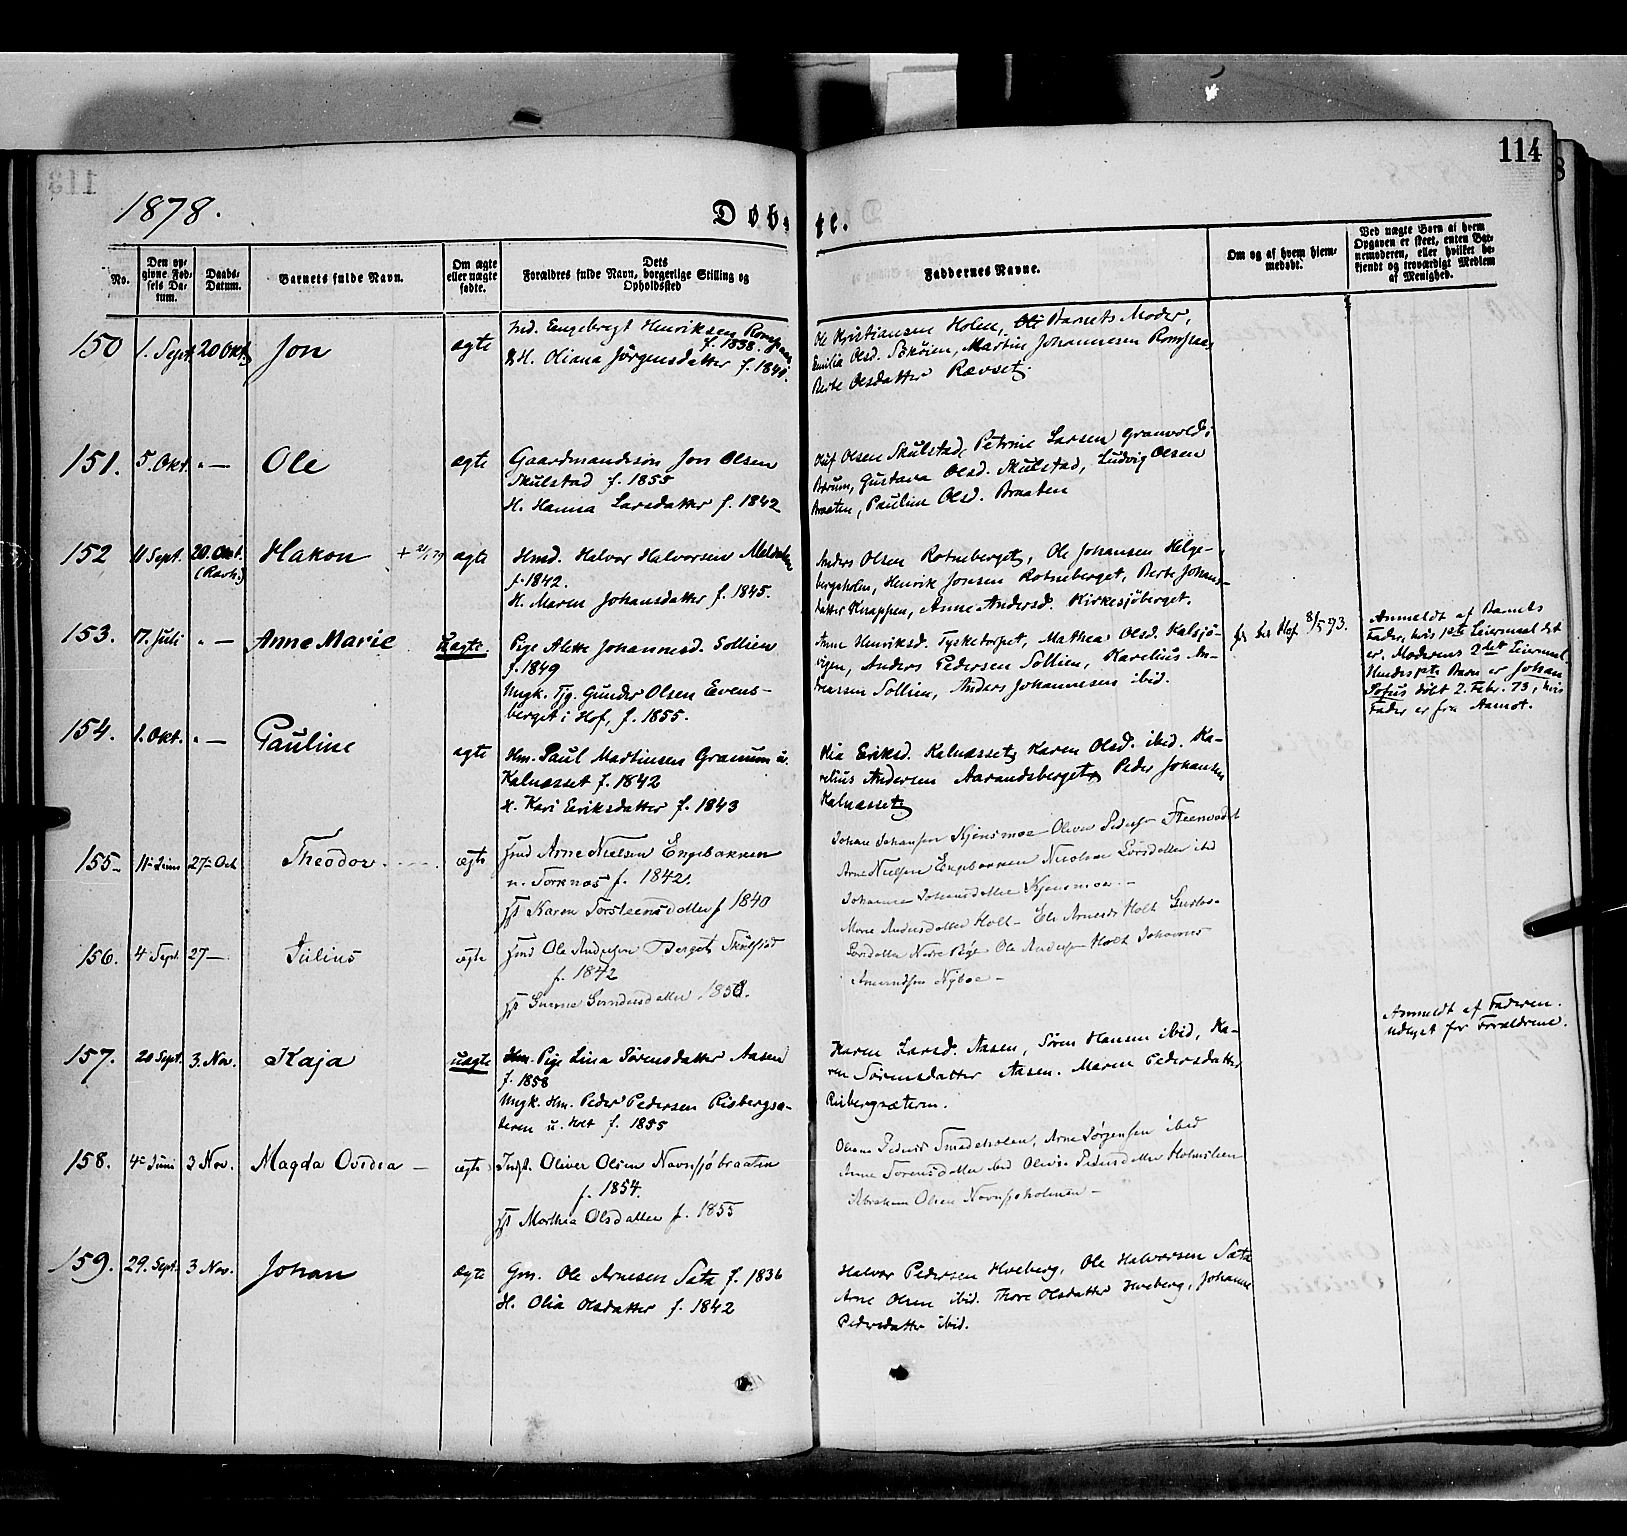 114
1878.
Døbte.
No.
Den opgivne Fødsels Datum.
Daabs-Datum.
Barnets fulde Navn.
Om ægte eller uægte fødte.
Dets Forældres fulde Navn, borgerlige Stilling og Opholdssted
Faddernes Navne.
Om og af hvem hjemmedøbt.
Ved uægte Børn af hvem Opgaven er skeet, enten Barnemoderen, eller hvilket bekjendt og troværdigt Medlem af Menighed.
150 1. Sept. 20 Okt. Jon ægte
Ind. Engebregt Henriksen f. 1838.
& H. Oliana Jørgensdatter f. 1840.
Ole Kristiansen Holen, Barnets Moder,
Emilie Olsd. Martin Johannesen
Berte Olsdatter Rævset
151. 5. Okt. "— Ole ægte
Gaardmandssøn Jon Olsen
Skulstad f. 1855
H. Hanna Larsdatter f. 1842
Oluf Olsen Skulstad, Petrine Larsen Granvold,
Bærum, Gustava Olsd. Skulstad, Ludvig Olsen
Braaten, Pauline Olsd. Braaten
152 11 Sept. 20. Okt. (Ravh.) Hakon + ægte
Hmd. Halvor Halvorsen
f. 1842.
H. Maren Johansdatter f. 1845.
Anders Olsen Rotneberget, Ole Johansen Helge-
bergsholen, Henrik Jonsen Rotneberget, Berte Johans-
datter Knappen, Anne Andersd. Kirkesjøberget.
153. 17. Juli "— Anne Marie uægte.
Pige Alette Johannesd. Sollien
f. 1849
Ungk. Tj. Gunder Olsen Evens-
berget i Hof, f. 1855.
Anne Henriksd. Tysketorpet, Mathea Olsd. Kalsjø-
vigen, Anders Pedersen Sollien, Karelius An-
dreassen Sollien, Anders Johannesen ibid.
8/5 93.
Anmeldt af Barnets
Fader, hvis 1ste Leiermaal det
er. Moderens 2det Leiermaal.
Hendes 1ste Barn er Johan
døbt 2. Febr. 73, hvis
Fader er fra Aamot.
154. 1. Okt. "— Pauline ægte
Hm. Paul Martinsen Granum u.
Kalnæsset f. 1842
H. Kari Eriksdatter f. 1843
Eriksd. Kalnæsset, Karen Olsd. ibid. Ka-
relius Andersen Aarandsberget, Peder Johansen
Kalnæsset
155 11te Juni 27de Oct Theodor ægte
Arne Nielsen Engebakken
u. Torknæs f. 1842.
Karen Torstensdatter f 1840
Johan Johansen Kjensmoe Oliver Peders
Arne Nielsen Engebakken Nicoline Larsdatter ibid
Johanne Johansdatter Kjensmoe
156. 4de Sept. 27— Julius ægte
Ole Andersen Berget Skulstad
f. 1842
Gundersdatter 1850.
Marie Andersdatter Holt Eli Arnesd. Holt
Larsdatter Nedre Ole Anders Holt Johannes
Amundsen Nyboe
157. 20 Sept. 3. Nov. Kaja uægte
Pige Lina Sørensdatter Aasen
f. 1858
Ungk. Hm. Peder Pedersen Risbergsæ-
teren u. Holt f. 1855
Karen Larsd. Aasen, Søren Hansen ibid, Ka-
ren Sørensdatter Aasen. Maren Pedersdatter
Risbergsæteren.
Anmeldt af Faderen.
Udlyst for Forældrene.
158. 4de Juni 3 Nov. Magda Ovidia ægte
Indst. Oliver Olsen Navnsjøbraaten
f. 1854.
Marthea Olsdatter f. 1855
Arne Jørgensen ibid
Anne Torensdatter ibid Pedersdatter Holmelien
Abraham Olsen Navnsjøholmen
159. 29. Sept. 3 Nov. Johan ægte
Gm. Ole Arnesen Sata f. 1836
H. Olia Olsdatter f. 1842
Halvor Pedersen Hveberg, Ole Halvorsen Sata
Arne Olsen ibid. Thore Olsdatter Hveberg, Johanne
Pedersdatter ibid.